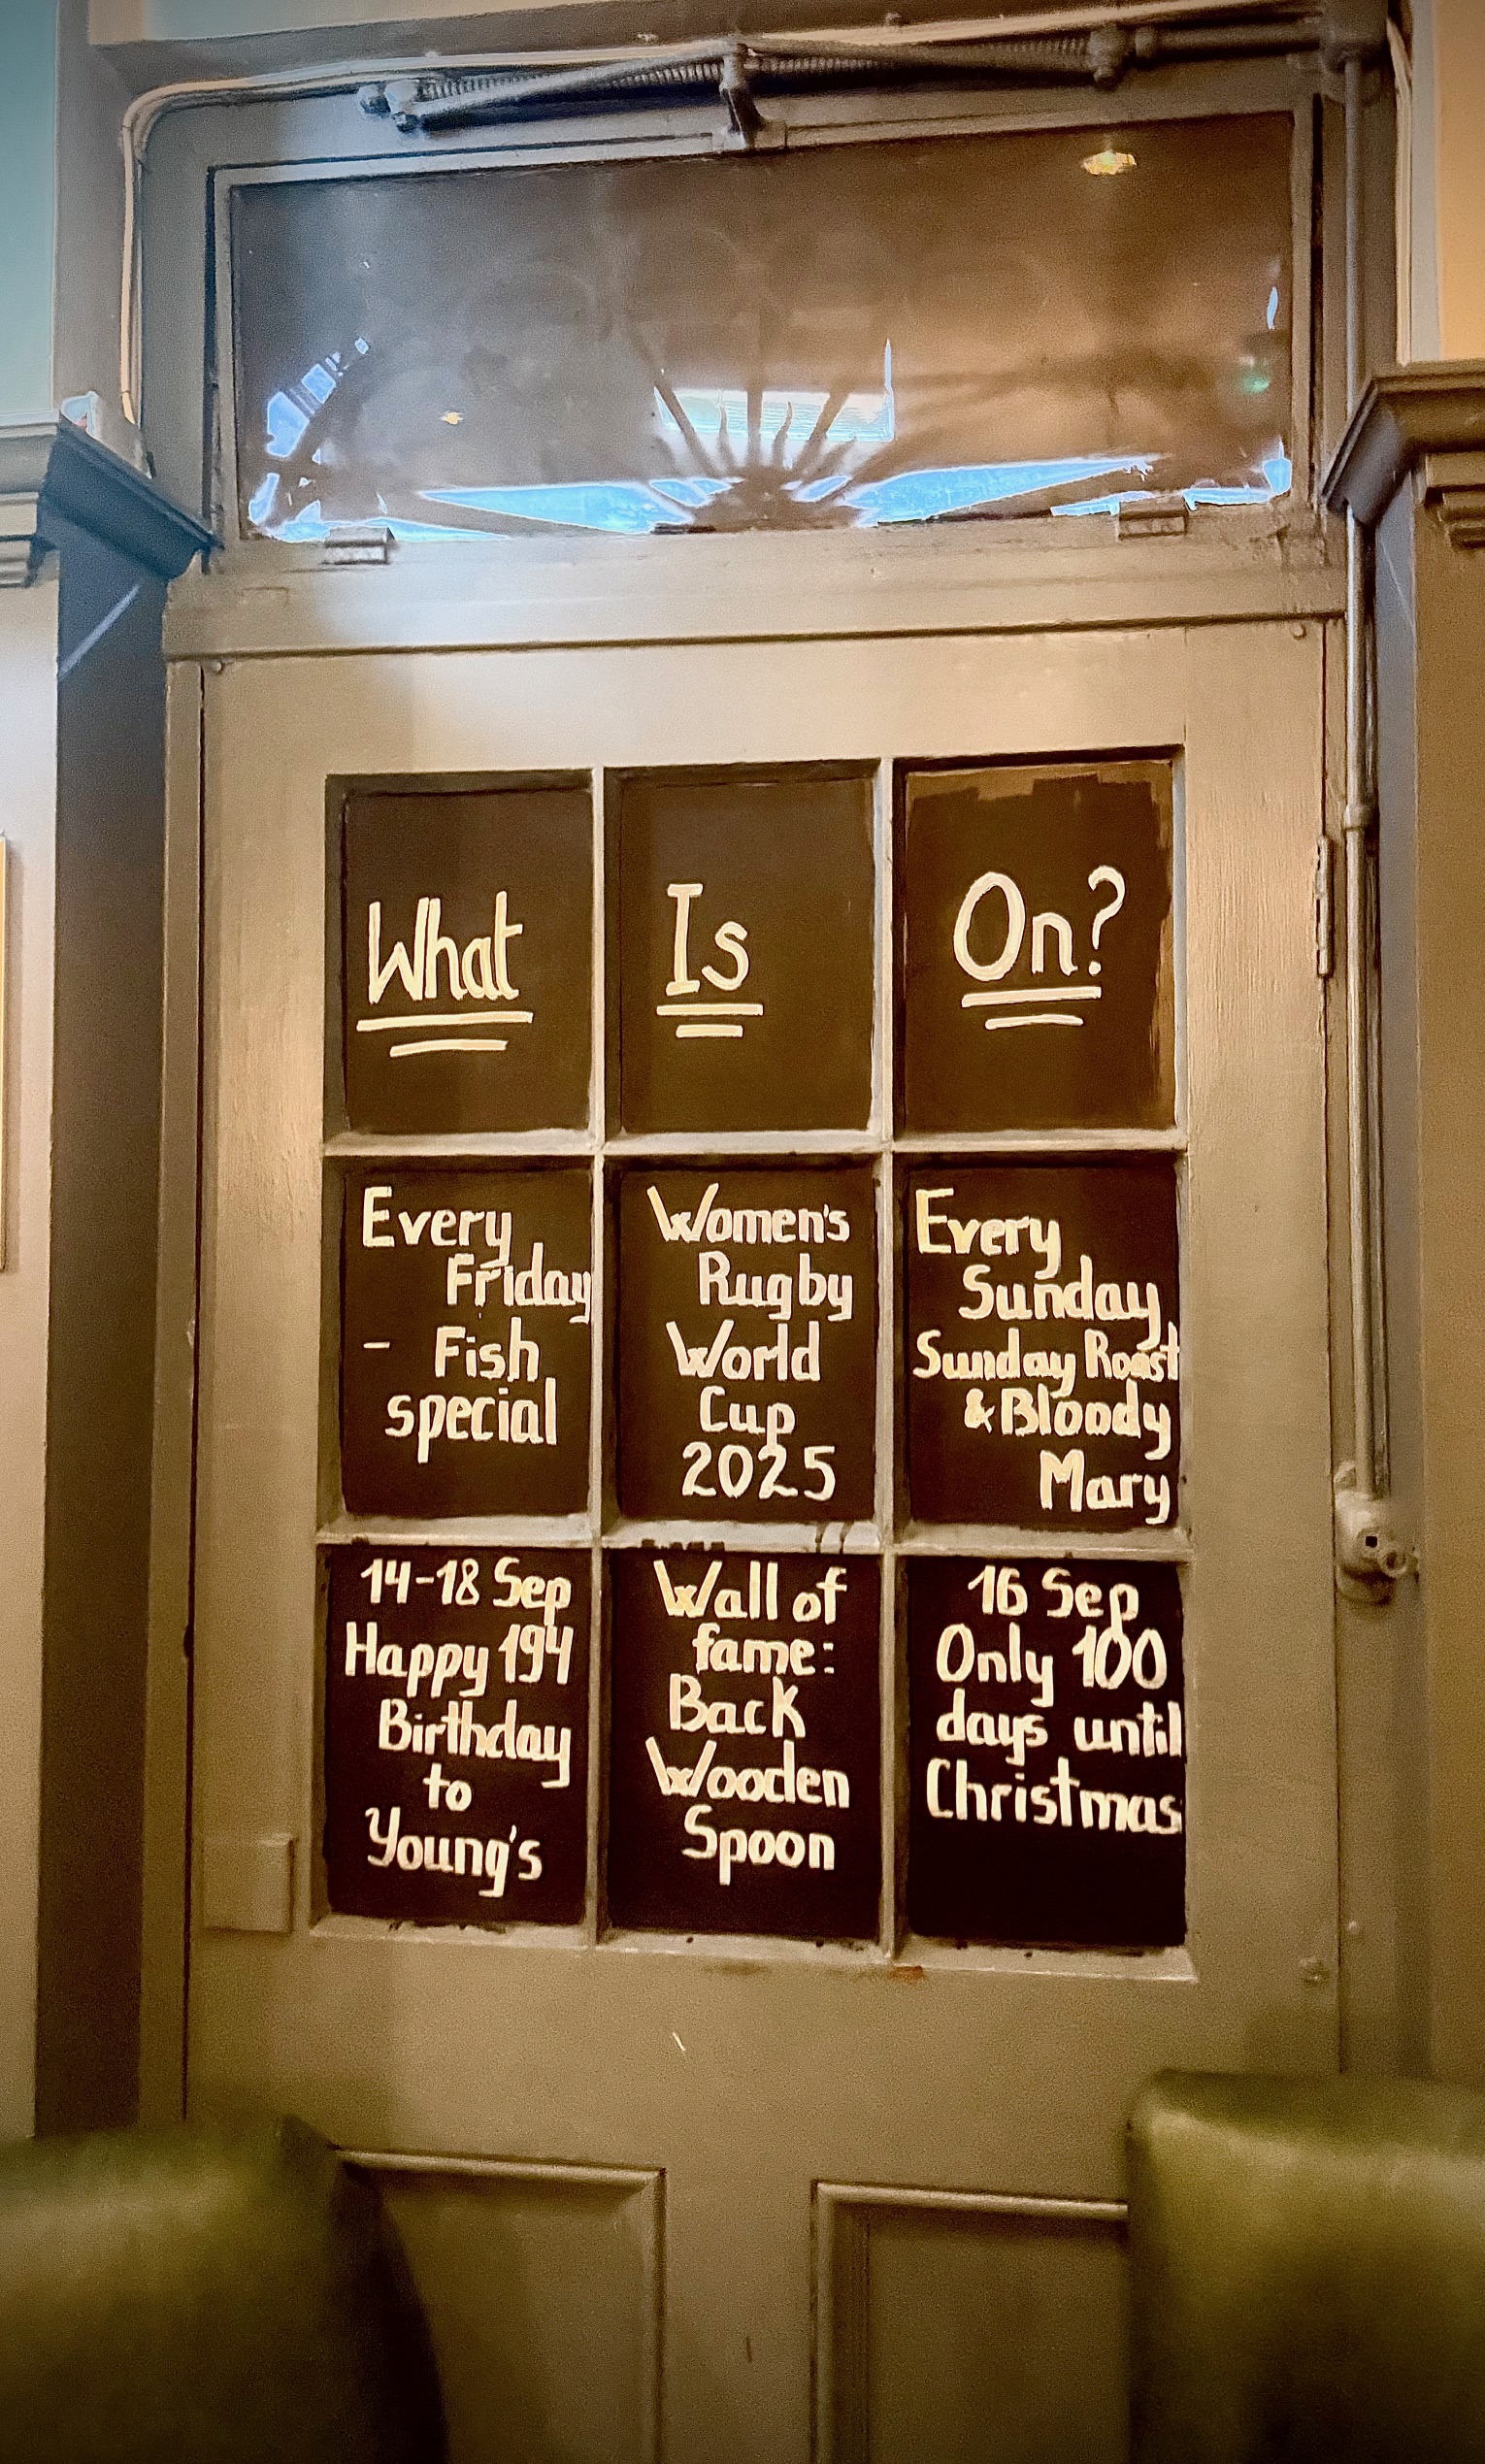 What
Is
On?
Every
Friday
- Fish
special
Women's
Rugby
World
Cup
2025
Every
Sunday
Sunday Roast
& Bloody
Mary
14-18 Sep
Happy 194
Birthday
to
Young's
Wall of
fame:
Back
Wooden
Spoon
16 Sep
Only 100
days until
Christmas